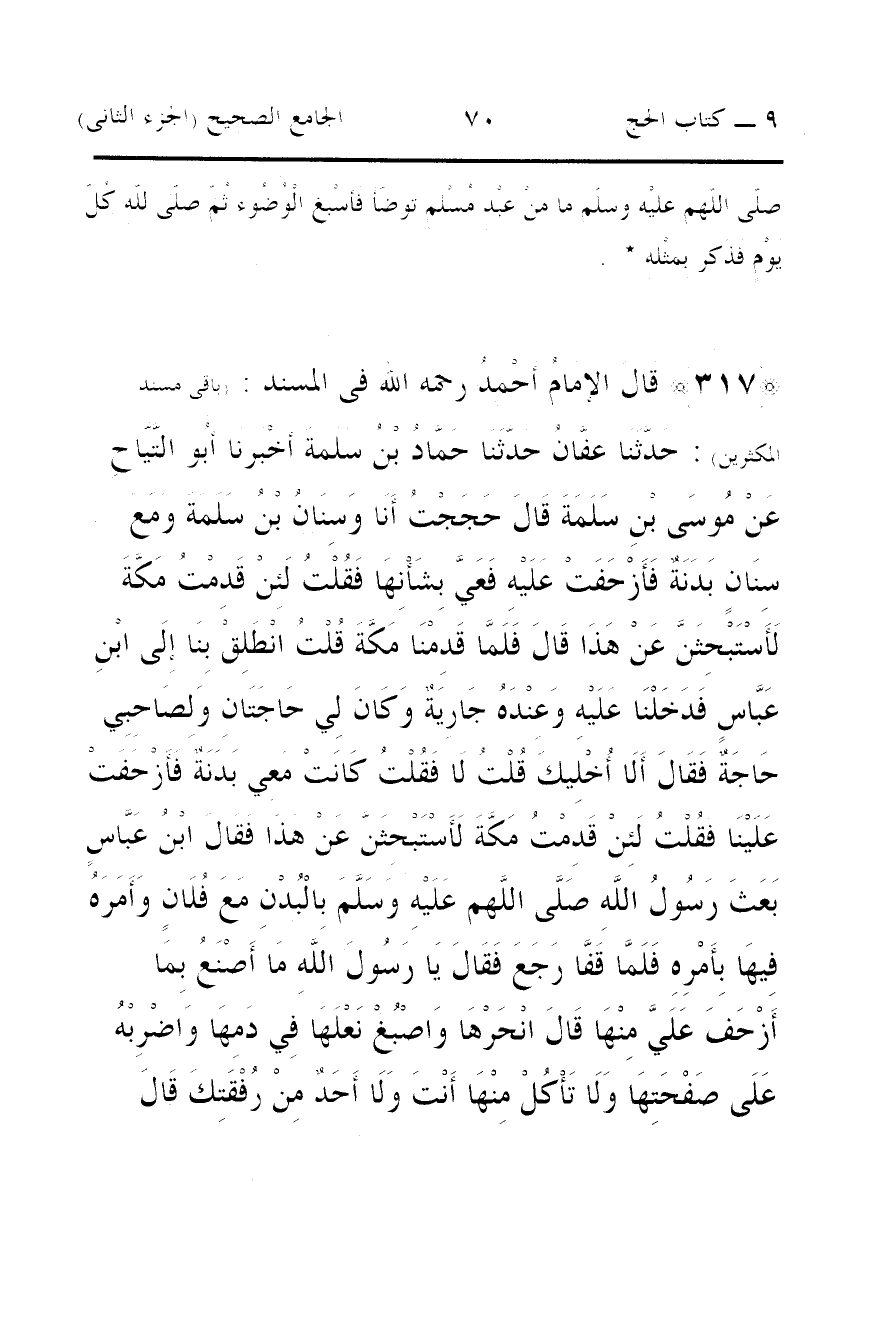 ٩ ــ كتاب الحج ٧٠ الجامع الصحيح (الجزء الثانى)
صلّى اللّهم عليْه وسلّم ما منْ عبْد مُسْلم توضّأ فأسْبغ الْوُضُوء ثُمّ صلّى للّه كُلّ
يوْم فذكر بمثْله * .
※٣١٧※ قَالَ الإمَامُ أحْمدُ رحمه الله فى المسند : (باقى مسند
المكثرين) : حَدَّثَنَا عفَّانُ حَدَّثَنَا حَمَّادُ بْنُ سَلَمةَ أخْبَرنَا أبُو التَّيَّاحِ
عَنْ مُوسَى بْنِ سَلَمَةَ قَالَ حَجَجْتُ أَنَا وَسِنَانُ بْنُ سَلَمَةَ وَمَعَ
سِنَانٍ بَدَنَةٌ فَأَزْحَفَتْ عَلَيْهِ فَعَيَّ بِشَأْنِهَا فَقُلْتُ لَئِنْ قَدِمْتُ مَكَّةَ
لَأَسْتَبْحِثَنَّ عَنْ هَذَا قَالَ فَلَمَّا قَدِمْنَا مَكَّةَ قُلْتُ انْطَلِقْ بِنَا إِلَى ابْنِ
عَبَّاسٍ فَدَخَلْنَا عَلَيْهِ وَعِنْدَهُ جَارِيَةٌ وَكَانَ لِي حَاجَتَانِ وَلِصَاحِبِي
حَاجَةٌ فَقَالَ أَلَا أُخْلِيكَ قُلْتُ لَا فَقُلْتُ كَانَتْ مَعِي بَدَنَةٌ فَأَزْحَفَتْ
عَلَيْنَا فَقُلْتُ لَئِنْ قَدِمْتُ مَكَّةَ لَأَسْتَبْحِثَنَّ عَنْ هَذَا فَقَالَ ابْنُ عَبَّاسٍ
بَعَثَ رَسُولُ اللَّهِ صَلَّى اللَّهم عَلَيْهِ وَسَلَّمَ بِالْبُدْنِ مَعَ فُلَانٍ وَأَمَرَهُ
فِيهَا بِأَمْرِهِ فَلَمَّا قَفَّا رَجَعَ فَقَالَ يَا رَسُولَ اللَّهِ مَا أَصْنَعُ بِمَا
أَزْحَفَ عَلَيَّ مِنْهَا قَالَ انْحَرْهَا وَاصْبُغْ نَعْلَهَا فِي دَمِهَا وَاضْرِبْهُ
عَلَى صَفْحَتِهَا وَلَا تَأْكُلْ مِنْهَا أَنْتَ وَلَا أَحَدٌ مِنْ رُفْقَتِكَ قَالَ